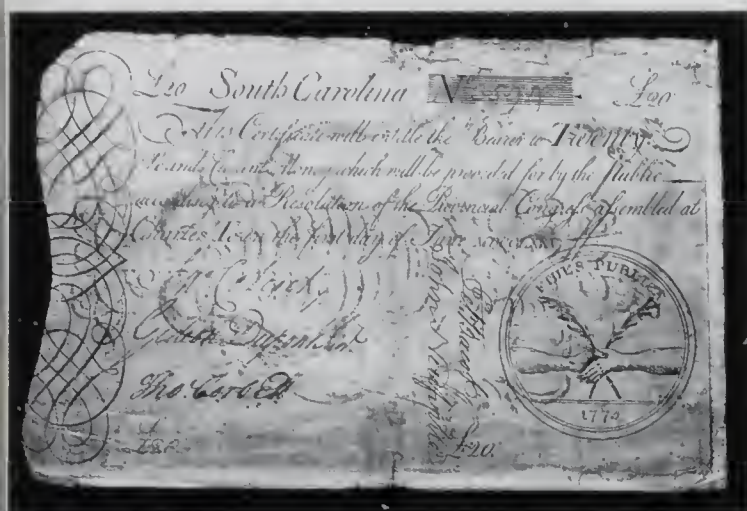 £20 South Carolina N £20
This Certificate will entitle the Bearer to Twenty
Pounds Current Money which will be provided for by the Public
according to a Resolution of the Provincial Congress assembled at
Charles Town the first day of June
FIDES PUBLICA
Gideon Dupont
Tho Corbett
£20
£20
1774